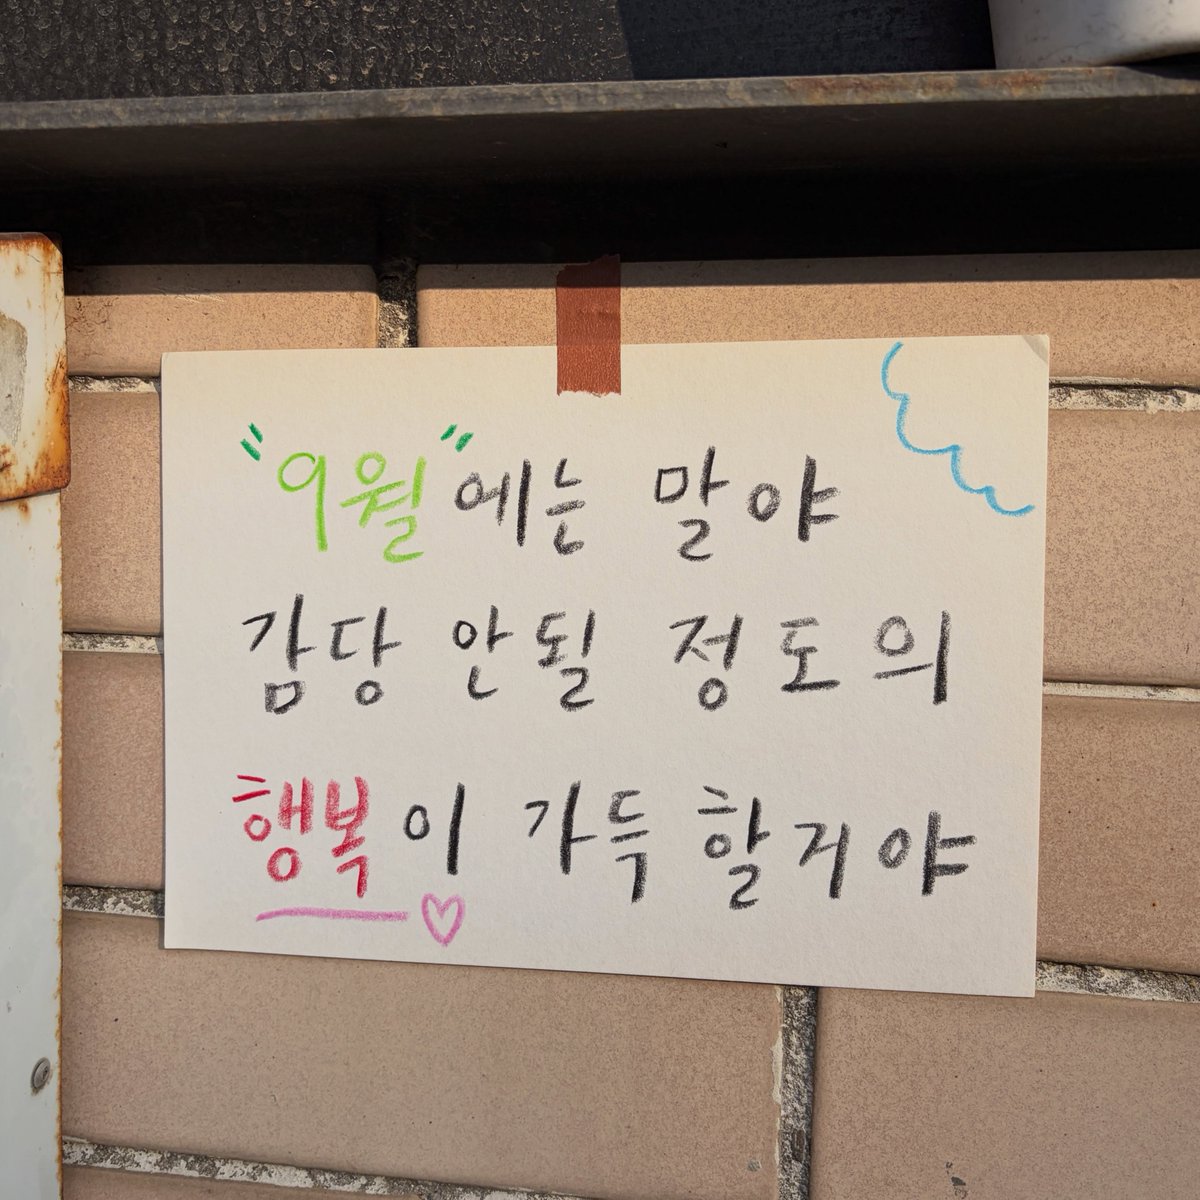 "9월"에는 말야
감당 안될 정도의
행복이 가득 할거야